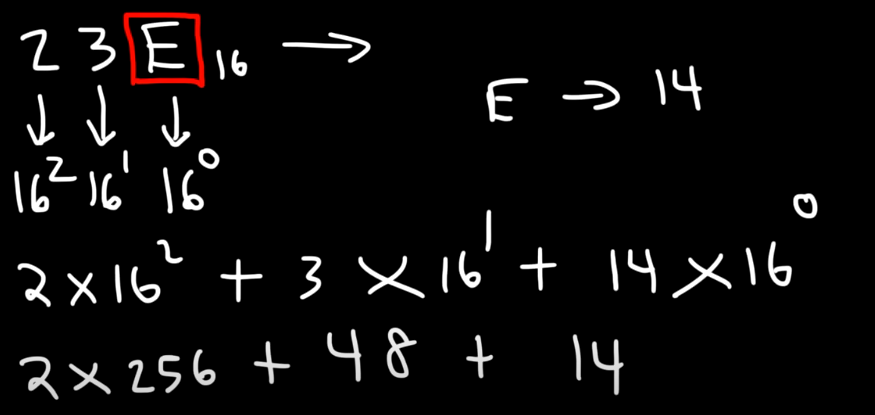 23E₁₆ →
E → 14
↓ ↓ ↓
16² 16¹ 16⁰
2 × 16² + 3 × 16¹ + 14 × 16⁰
2 × 256 + 48 + 14